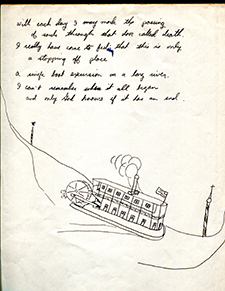 with each day I may mark the passing
of souls through that door called death.
I really have come to feel that this is only
a stopping off place
a single boat excursion on a long river.
I can't remember when it all began
and only God knows if it has an end.